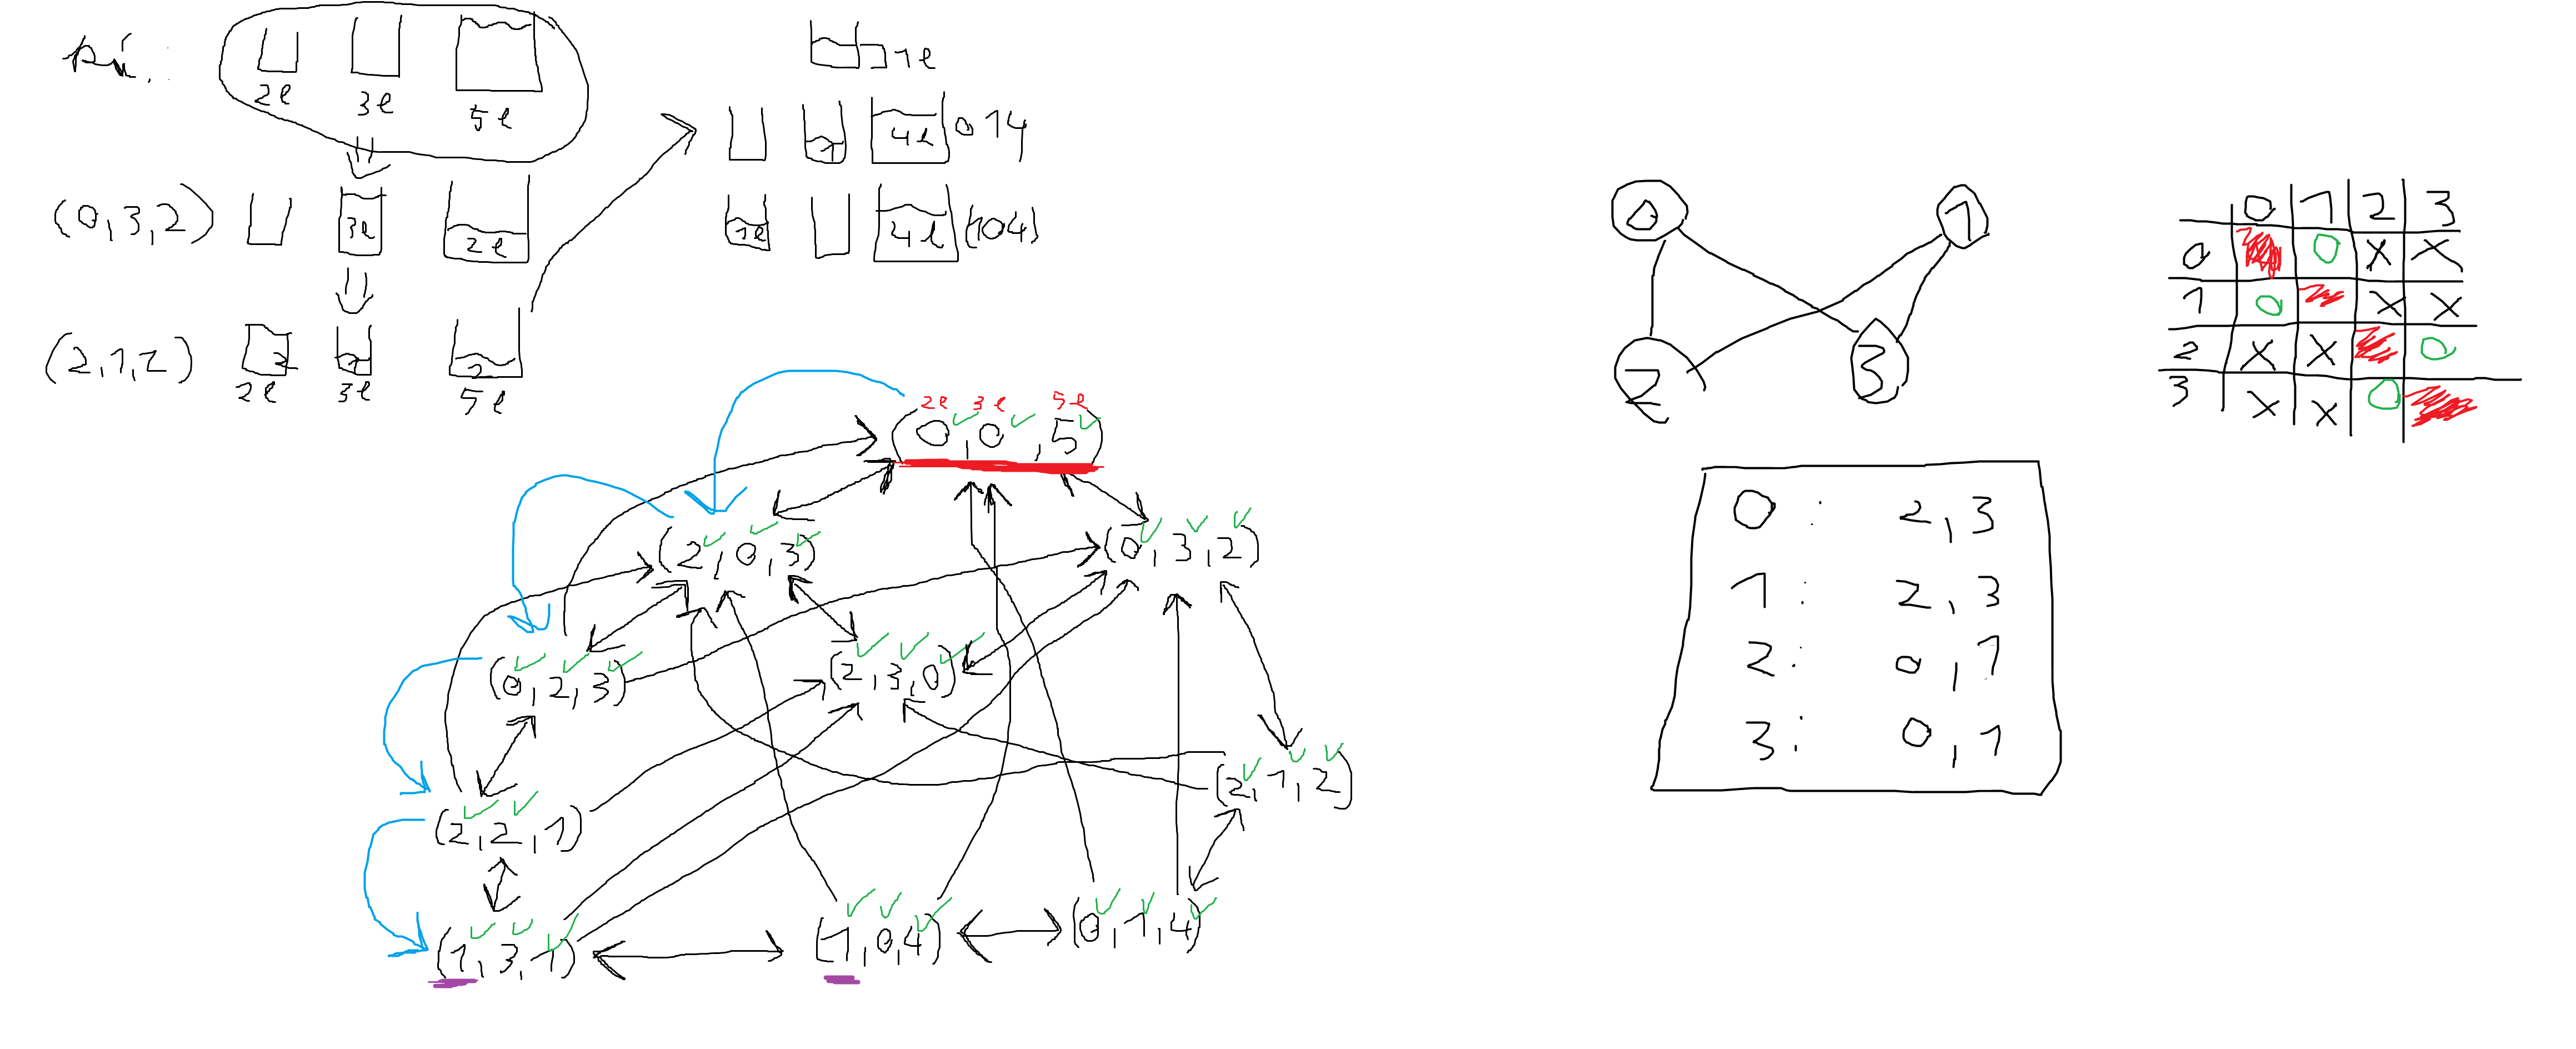 Pú.:
2l 3l 5l
(0,3,2) 3l 2l
(2,1,2) 2 1 2
2l 3l 5l
1l
1 4l 014
1l 4l (104)
2l 3l 5l
(0,0,5)
(2,0,3) (0,3,2)
(0,2,3) (2,3,0)
(2,1,2)
(2,2,1)
(1,3,1) (1,0,4) (0,1,4)
0 1
2 3
0 1 2 3
0 O X X
1 O X X
2 X X O
3 X X O
0: 2,3
1: 2,3
2: 0,1
3: 0,1